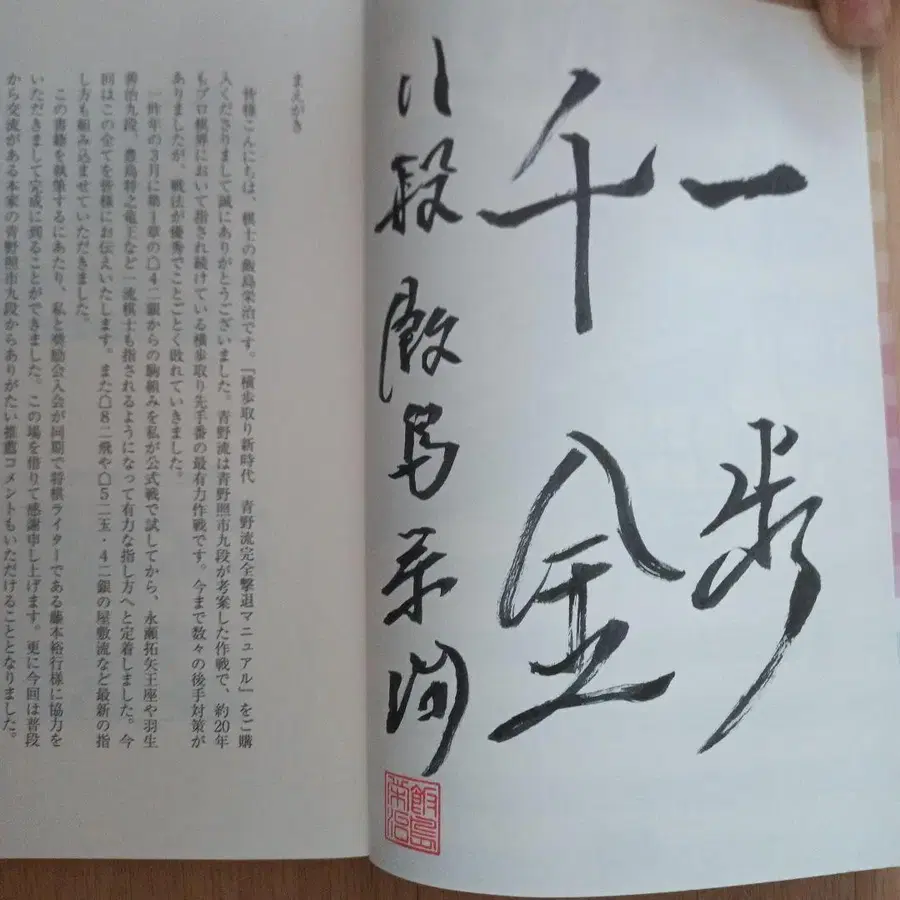 一歩
千金
八段 飯島栄治
飯島
栄治
まえがき
皆様こんにちは、棋士の飯島栄治です。『横歩取り新時代　青野流完全撃退マニュアル』をご購
入くださりまして誠にありがとうございました。青野流は青野照市九段が考案した作戦で、約20年
もプロ棋界において指され続けている横歩取り先手番の最有力作戦です。今まで数々の後手対策が
ありましたが、戦法が優秀でことごとく敗れていきました。
一昨年の3月に第1章の△4二銀からの駒組みを私が公式戦で試してから、永瀬拓矢王座や羽生
善治九段、豊島将之竜王など一流棋士も指されるようになって有力な指し方へと定着しました。今
回はこの全てを皆様にお伝えいたします。また△8二飛や△5二玉・4二銀の屋敷流など最新の指
し方も組み込ませていただきました。
この書籍を執筆するにあたり、私と奨励会入会が同期で将棋ライターである藤本裕行様に協力を
いただきまして完成に到ることができました。この場を借りて感謝申し上げます。更に今回は普段
から交流がある本家の青野照市九段からありがたい推薦コメントもいただけることとなりました。